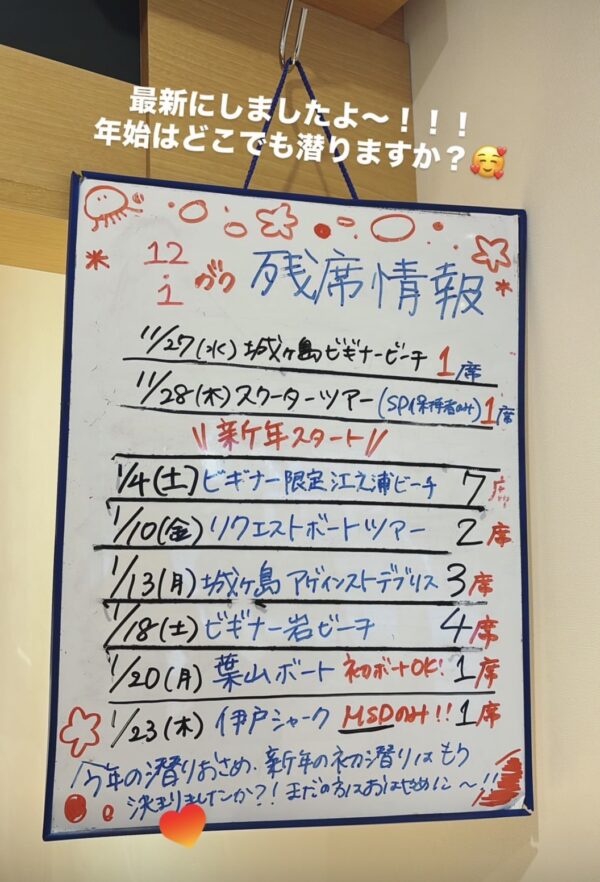 最新にしましたよ〜！！！
年始はどこでも潜りますか？🥰
12・1 がつ 残席情報
11/27(水) 城ヶ島ビギナービーチ 1席
11/28(木) スクーターツアー(SP保持者のみ) 1席
\\新年スタート//
1/4(土) ビギナー限定江之浦ビーチ 7席
1/10(金) リクエストボートツアー 2席
1/13(月) 城ヶ島 アゲインストデブリス 3席
1/18(土) ビギナー岩ビーチ 4席
1/20(月) 葉山ボート 初ボートOK! 1席
1/23(木) 伊戸シャーク MSDのみ!! 1席
今年の潜りおさめ、新年の初潜りはもう
決まりましたか?! まだの方はおはやめに〜!!